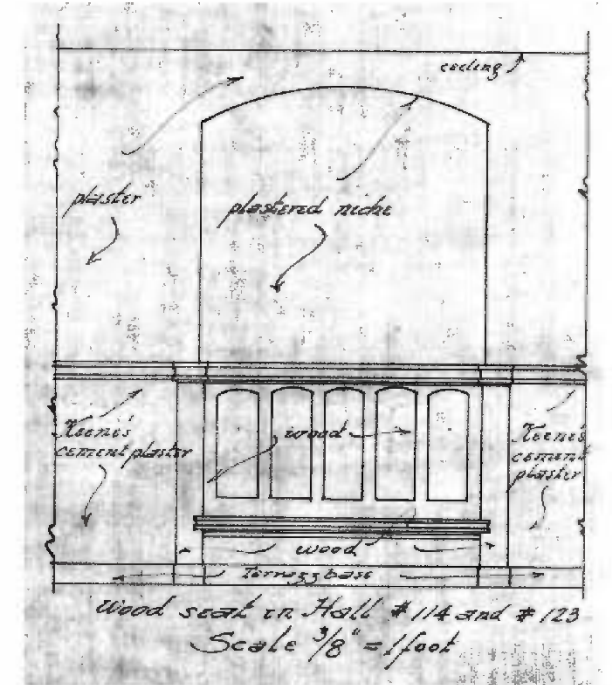 ceiling
plaster
plastered niche
Keene's
cement plaster
wood
Keene's
cement
plaster
wood
Terrazzo base
Wood seat in Hall #114 and #123
Scale 3/8" = 1 foot